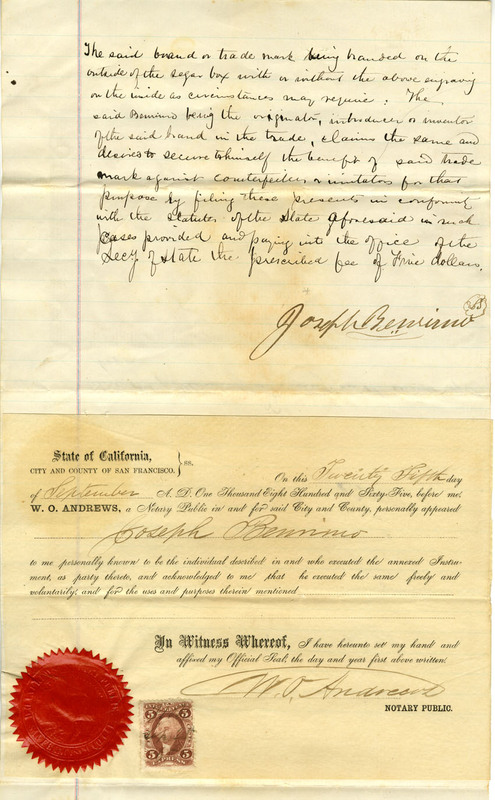 The said brand or trade mark being branded on the
outside of the segar box with or without the above engraving
on the inside as circumstances may require. The
said Benrimo being the originator, introducer or inventor
of the said brand in the trade, claims the same and
desires to secure to himself the benefit of said trade
mark against counterfeiters or imitators for that
purpose by filing these presents in conformity
with the statutes of the State aforesaid in such
cases provided and paying into the office of the
Secy of State the prescribed fee of Five dollars.
Joseph Benrimo
State of California,
CITY AND COUNTY OF SAN FRANCISCO. } SS.
On this Twenty Fifth day
of September A. D. One Thousand Eight Hundred and Sixty-Five, before me,
W. O. ANDREWS, a Notary Public in and for said City and County, personally appeared
Joseph Benrimo
to me personally known to be the individual described in and who executed the annexed Instru-
ment, as party thereto, and acknowledged to me that he executed the same freely and
voluntarily, and for the uses and purposes therein mentioned
In Witness Whereof, I have hereunto set my hand and
affixed my Official Seal, the day and year first above written.
W. O. Andrews
NOTARY PUBLIC.
5 5
EXPRESS